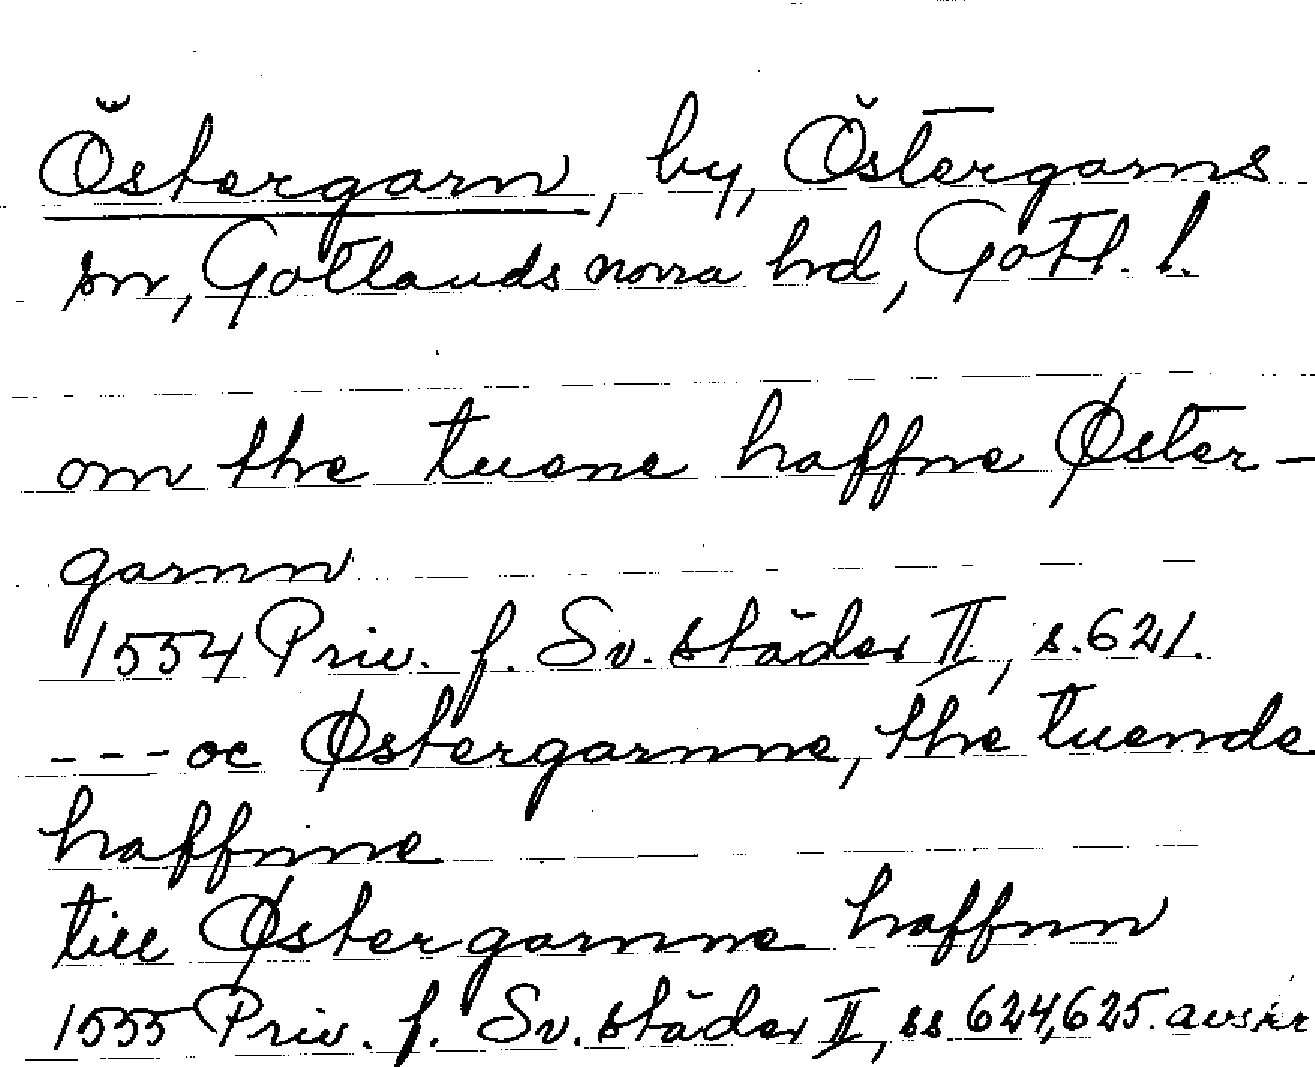 Östergarn, by, Östergarns
sn, Gotlands norra hd, Gotl. l.
om the tuene haffne Øster-
garnn
1554 Priv. f. Sv. städer II, s. 621.
--- oc Østergarnne, the tuende
haffnne
till Østergarnne haffnn
1555 Priv. f. Sv. städer II, ss 624, 625. avskr